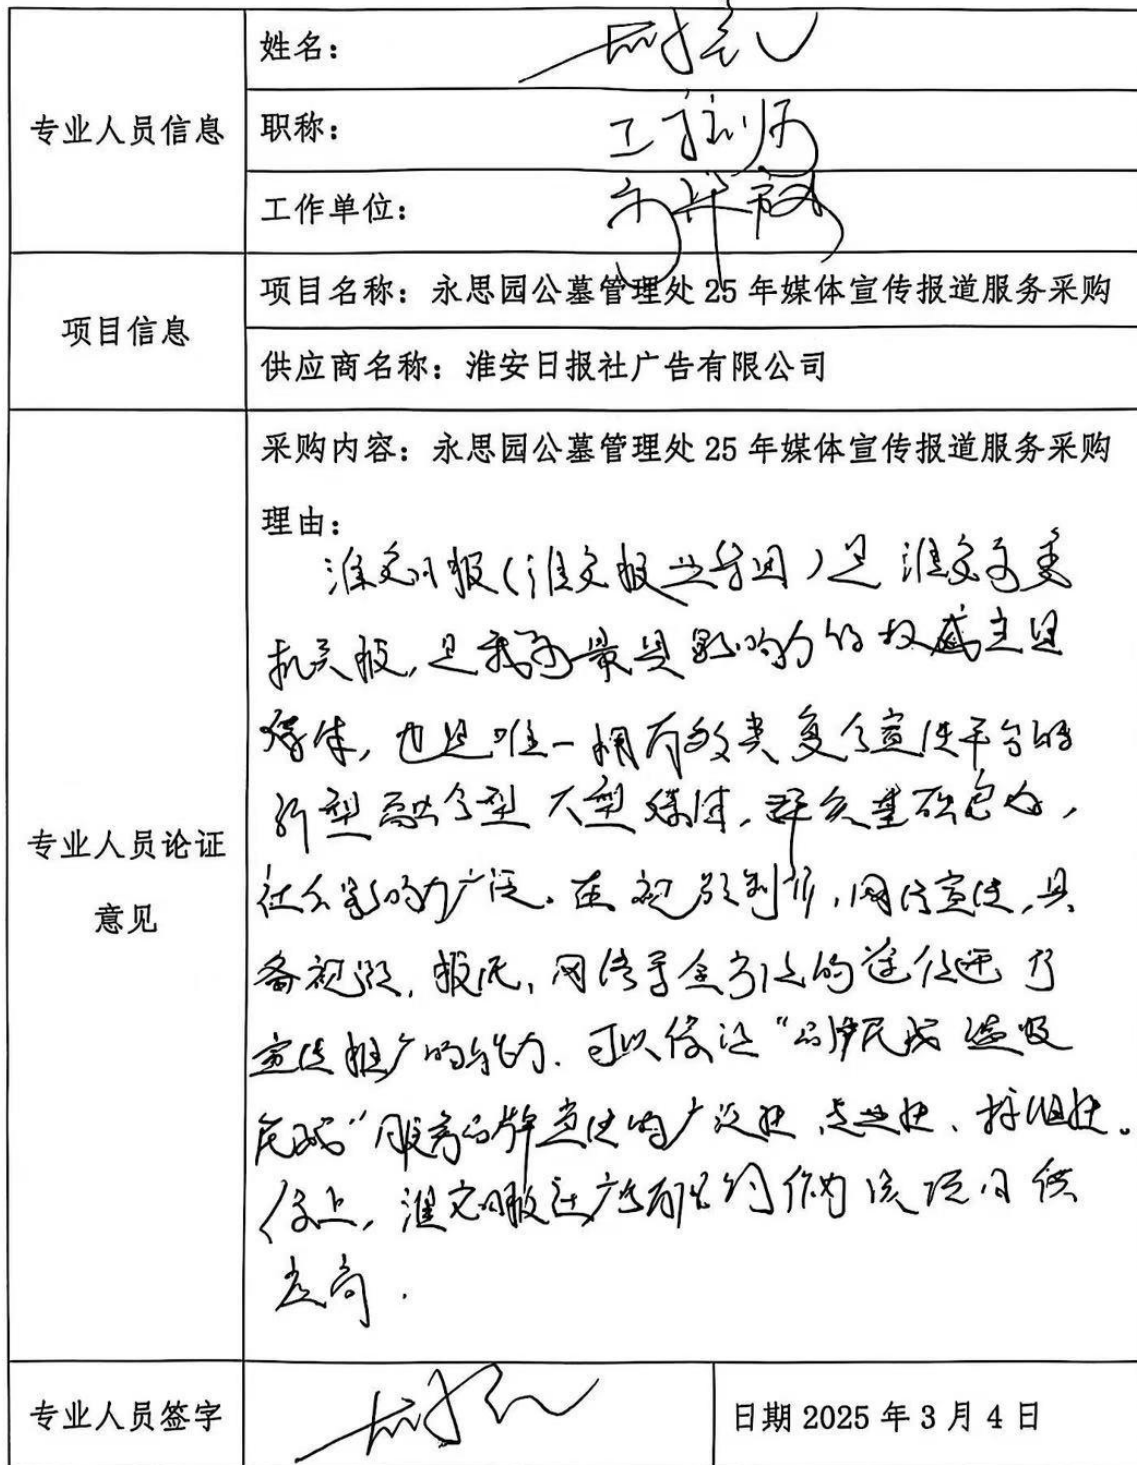 专业人员信息
姓名：
职称：工程师
工作单位：
项目信息
项目名称：永思园公墓管理处 25 年媒体宣传报道服务采购
供应商名称：淮安日报社广告有限公司
专业人员论证
意见
采购内容：永思园公墓管理处 25 年媒体宣传报道服务采购
理由：
淮安日报（淮安报业集团）是淮安市委
机关报，是我市最具影响力的权威主
媒体，也是唯一拥有数类复合宣传平台的
新型融合型大型媒体，群众基础
社会影响力广泛。在视频制作，网络宣传，具
备视频，报纸，网络等全方位的途径进行
宣传推广的能力．可以保证
服务品牌宣传的广泛性
综上，淮安日报社广告有限公司作为该项目供
应商．
专业人员签字
日期 2025 年 3 月 4 日